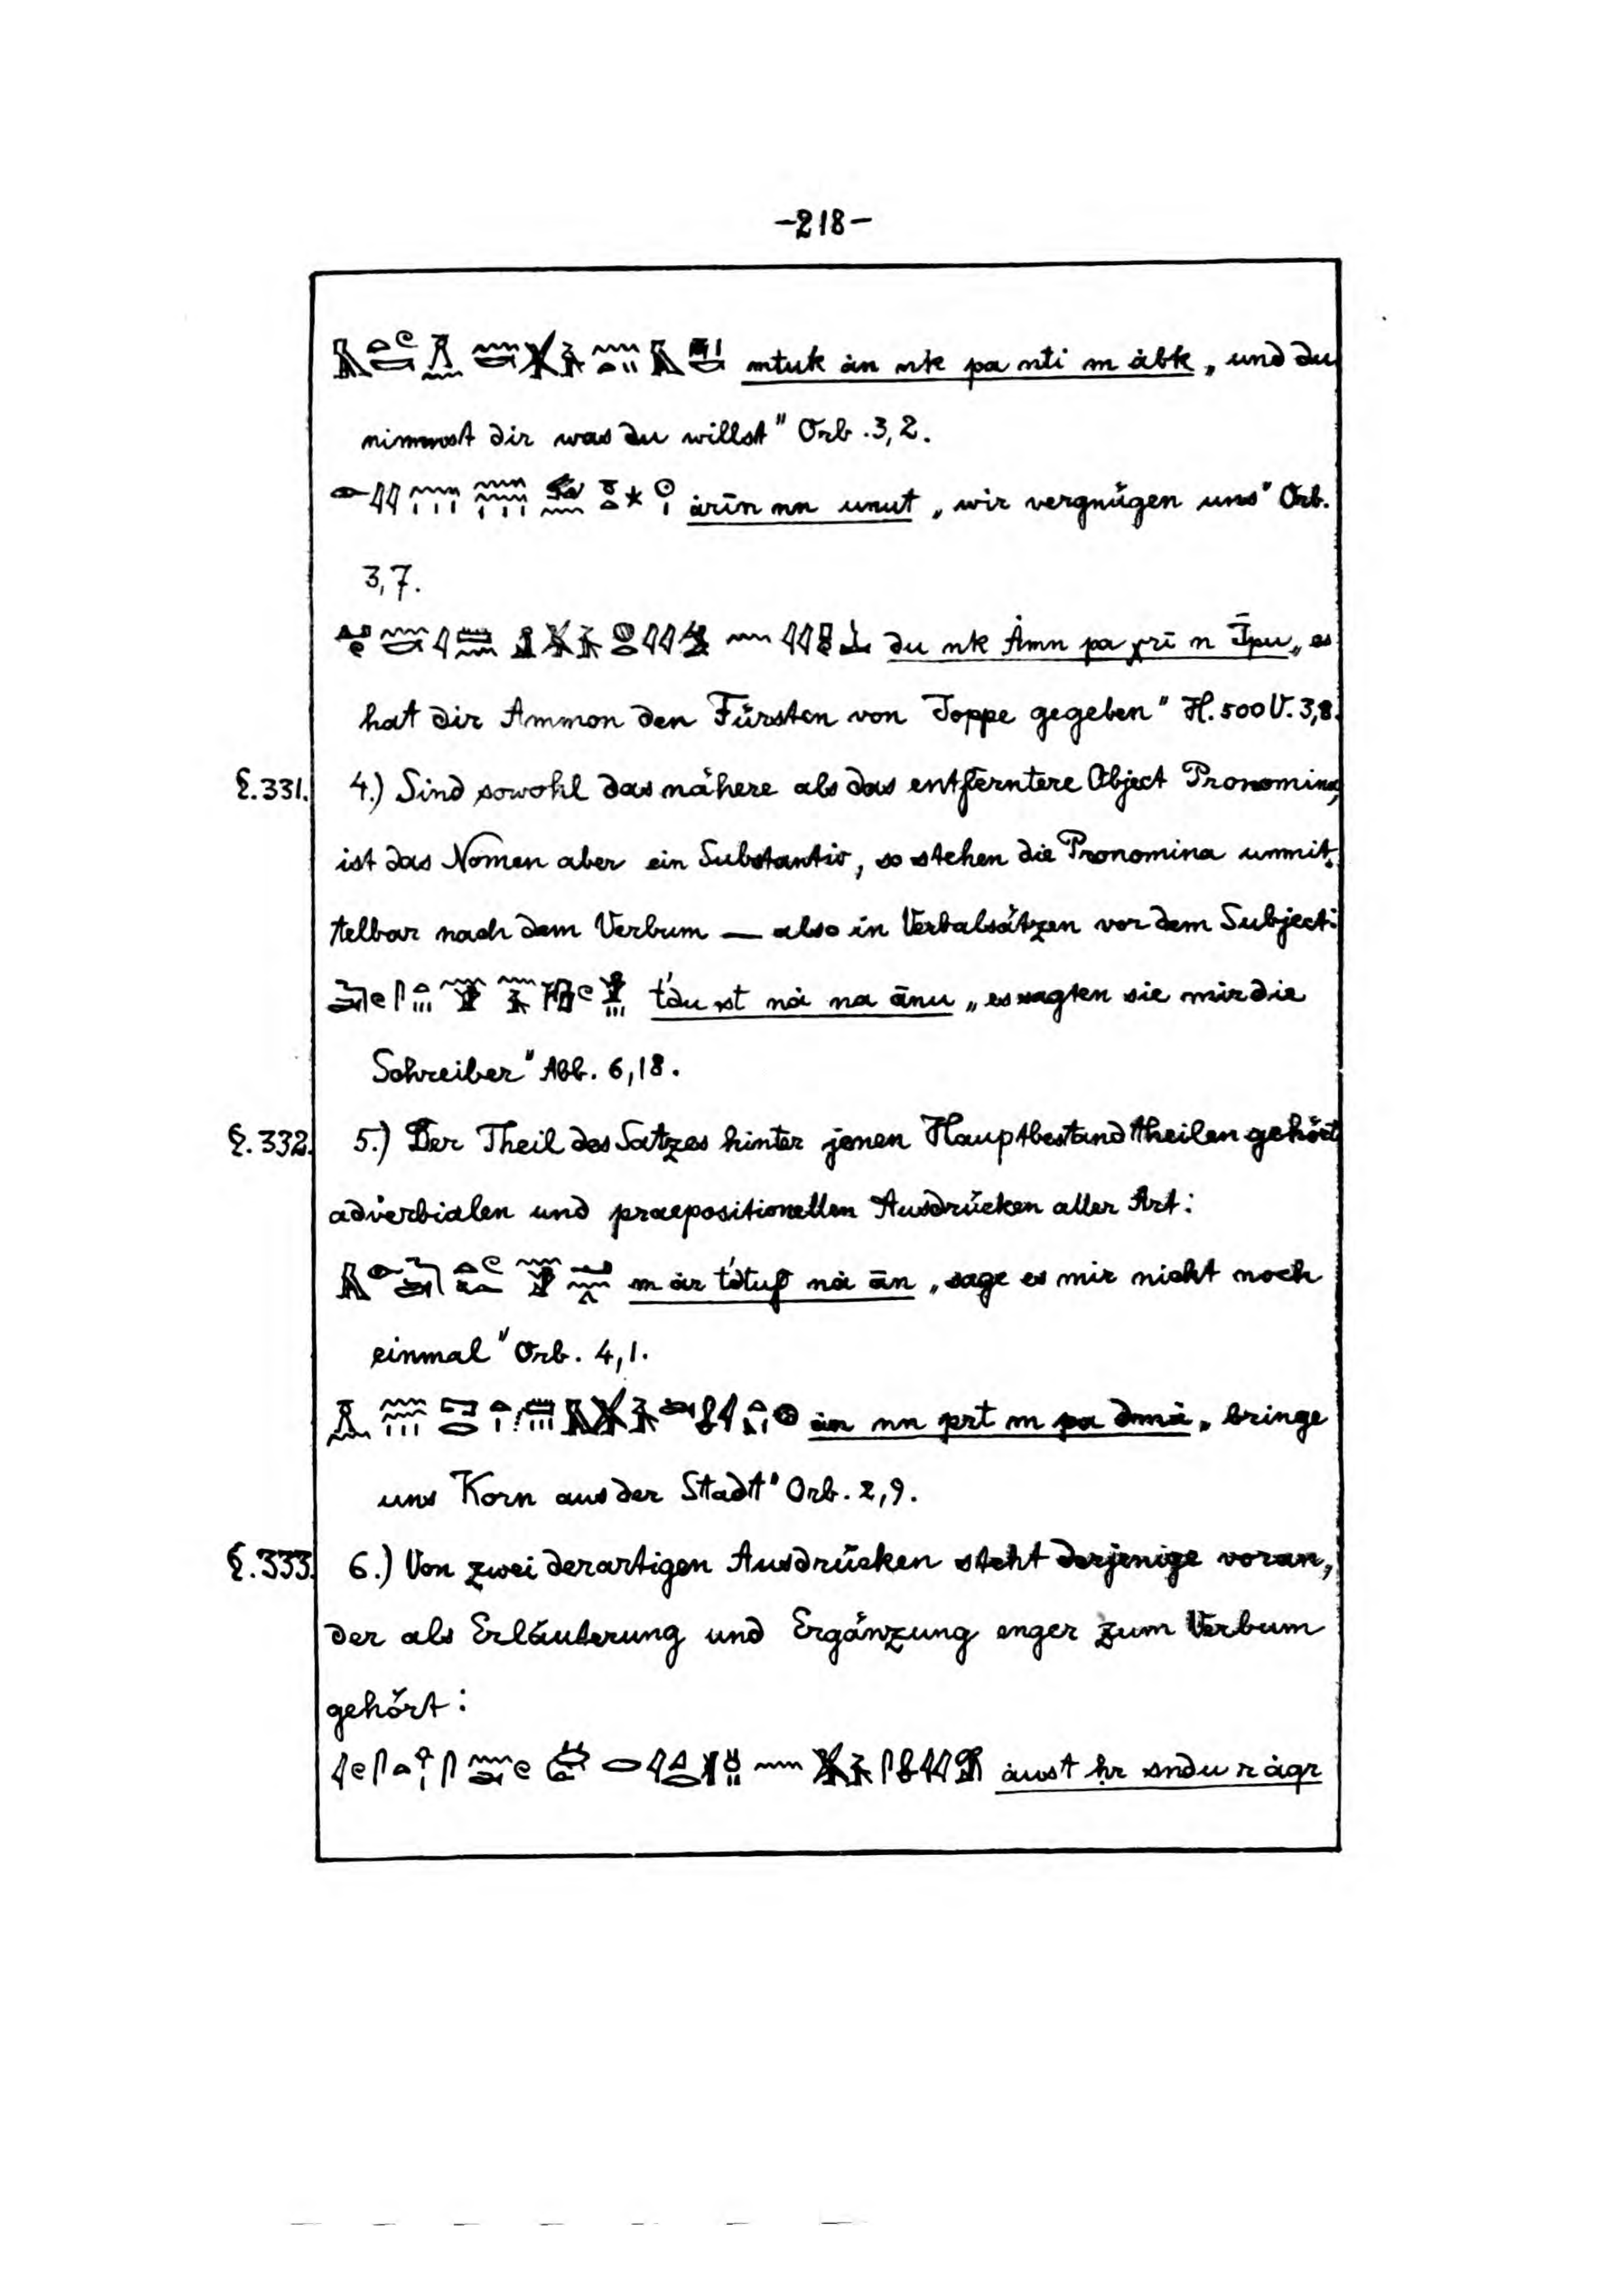 -218-
mtuk ȧn nk pa nti m ȧbk „und du
nimmst dir was du willst" Orb. 3,2.
ȧrīn nn unut „wir vergnügen uns" Orb.
3,7.
du nk Ȧmn pa χrī n Īpu „es
hat dir Ammon den Fürsten von Joppe gegeben" H. 500 V. 3,8.
§.331. 4.) Sind sowohl das nähere als das entferntere Object Pronomina,
ist das Nomen aber ein Substantiv, so stehen die Pronomina unmit-
telbar nach dem Verbum — also in Verbalsätzen vor dem Subject:
t́du st nȧ na ānu „es sagten sie mir die
Schreiber" Abb. 6,18.
§.332. 5.) Der Theil des Satzes hinter jenen Hauptbestandtheilen gehört
adverbialen und praepositionellen Ausdrücken aller Art:
m ȧr t́dtuf nȧ ān „sage es mir nicht noch
einmal" Orb. 4,1.
ȧn nn prt m pa dmȧ „bringe
uns Korn aus der Stadt" Orb. 2,9.
§.333. 6.) Von zwei derartigen Ausdrücken steht derjenige voran,
der als Erläuterung und Ergänzung enger zum Verbum
gehört:
ȧust ḥr sndu r ȧqr